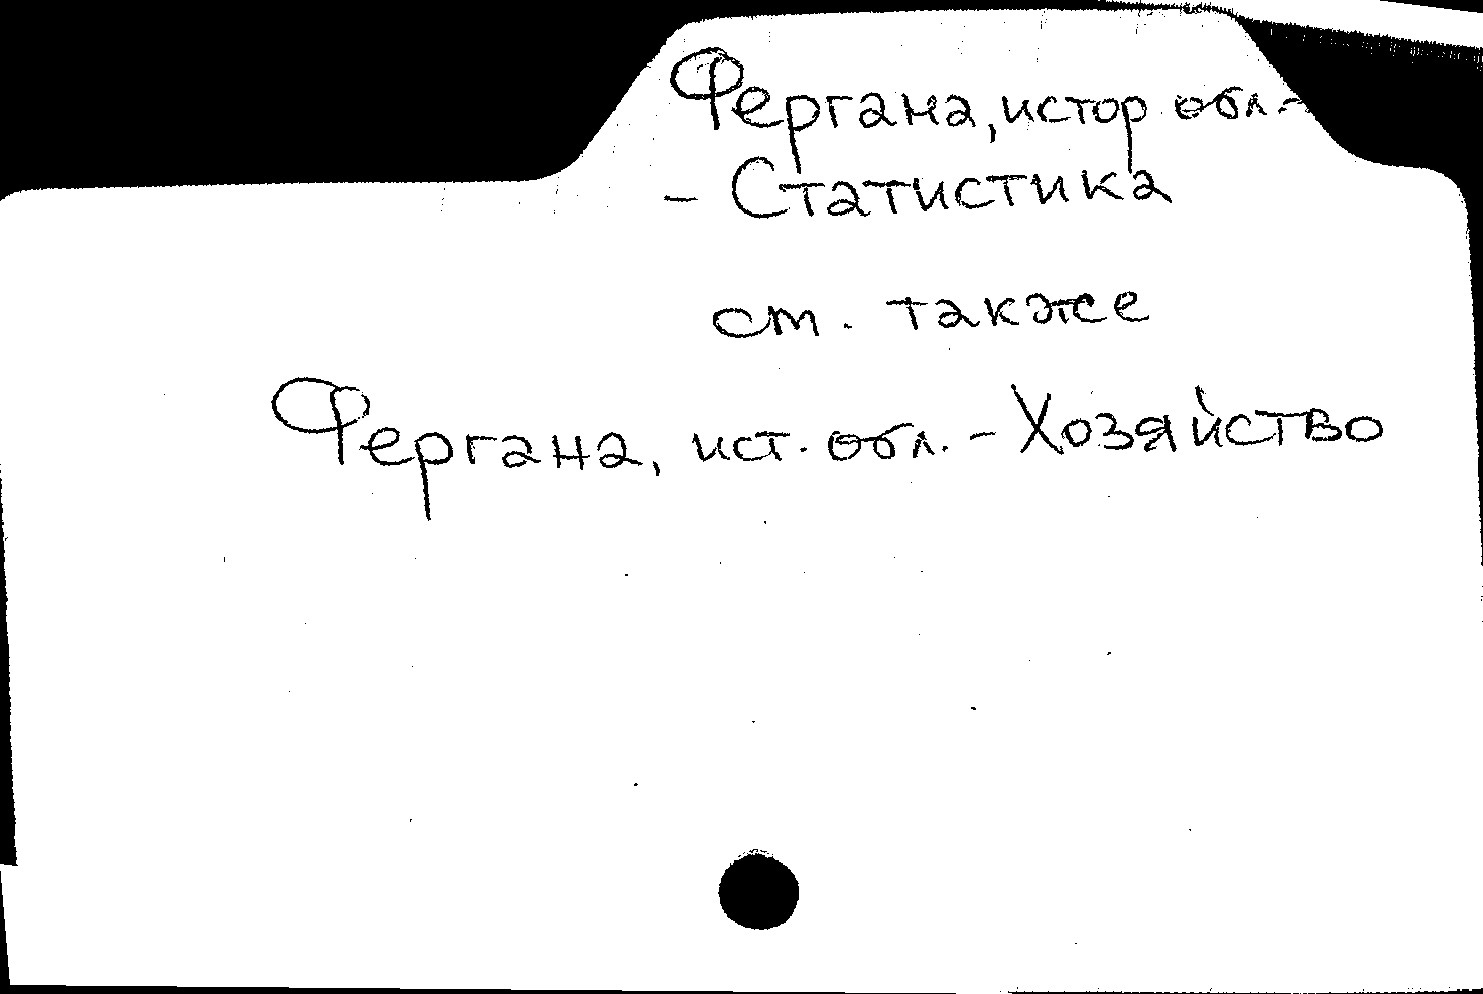 Фергана, истор обл.-
- Статистика
см. также
Фергана, ист. обл. - Хозяйство